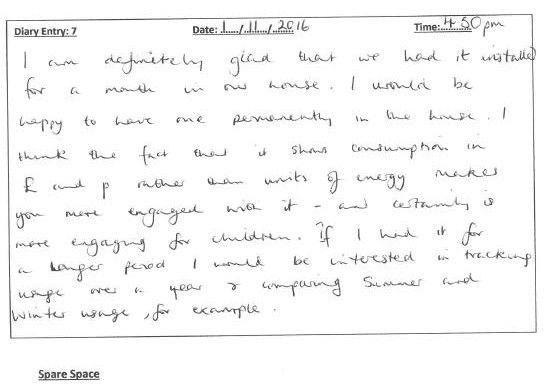 Diary Entry: 7 Date: 1/11/2016 Time: 4.50pm
I am definitely glad that we had it installed
for a month in our house. I would be
happy to have one permanently in the house. I
think the fact that it shows consumption in
£ and p rather than units of energy makes
you more engaged with it - and certainly is
more engaging for children. If I had it for
a longer period I would be interested in tracking
usage over a year & comparing Summer and
Winter usage, for example.
Spare Space